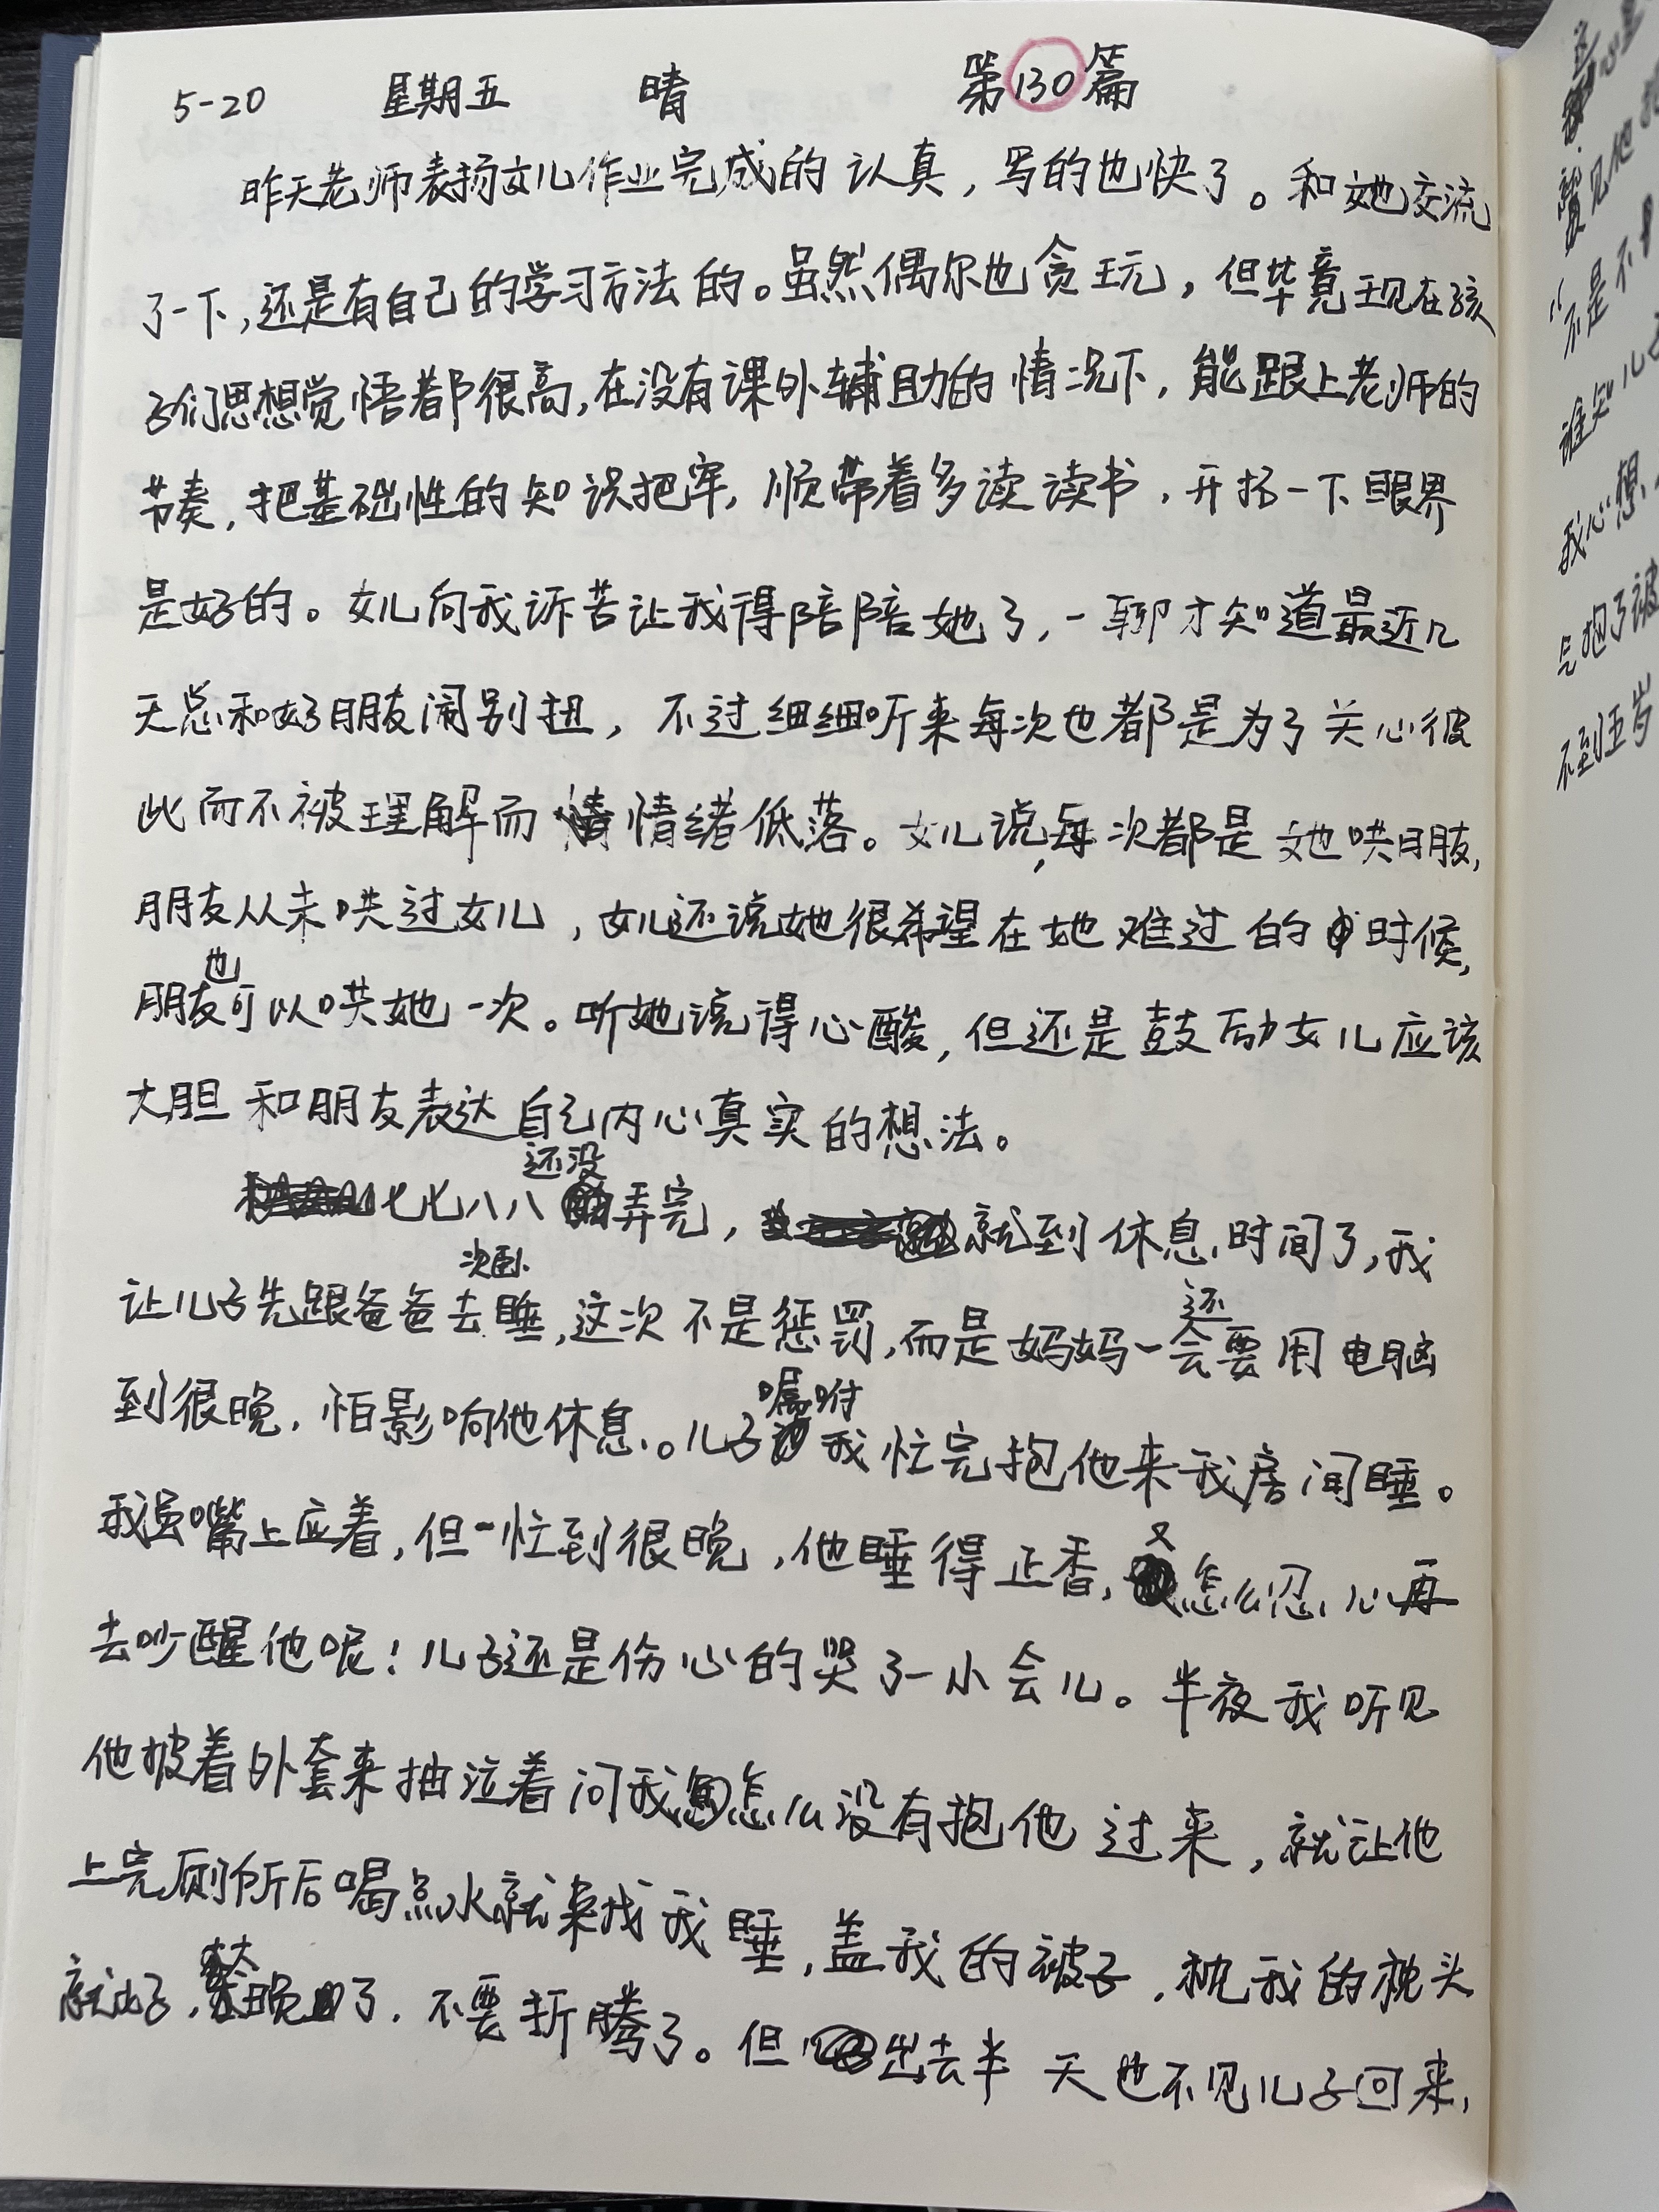 5-20 星期五 晴 第130篇
昨天老师表扬女儿作业完成的认真，写的也快了。和她交流
了一下，还是有自己的学习方法的。虽然偶尔也贪玩，但毕竟现在孩
子们思想觉悟都很高，在没有课外辅助的情况下，能跟上老师的
节奏，把基础性的知识把牢，顺带着多读读书，开拓一下眼界
是好的。女儿向我诉苦让我得陪陪她了，一聊才知道最近几
天总和好朋友闹别扭，不过细细听来每次也都是为了关心彼
此而不被理解而情绪低落。女儿说，每次都是她哄朋友，
朋友从未哄过女儿，女儿还说她很希望在她难过的时候，
朋友也可以哄她一次。听她说得心酸，但还是鼓励女儿应该
大胆和朋友表达自己内心真实的想法。
七七八八还没弄完，就到休息时间了，我
让儿子先跟爸爸去次卧睡，这次不是惩罚，而是妈妈一会还要用电脑
到很晚，怕影响他休息。儿子嘱咐我忙完抱他来我房间睡。
我虽嘴上应着，但一忙到很晚，他睡得正香，又怎么忍心再
去吵醒他呢！儿子还是伤心的哭了一小会儿。半夜我听见
他披着外套来抽泣着问我怎么没有抱他过来，就让他
上完厕所后喝点水就来找我睡，盖我的被子，枕我的枕头
就好，太晚了，不要折腾了。但出去半天也不见儿子回来，
见他
不是不
谁知儿子
我心想，
抱了被
不到五岁